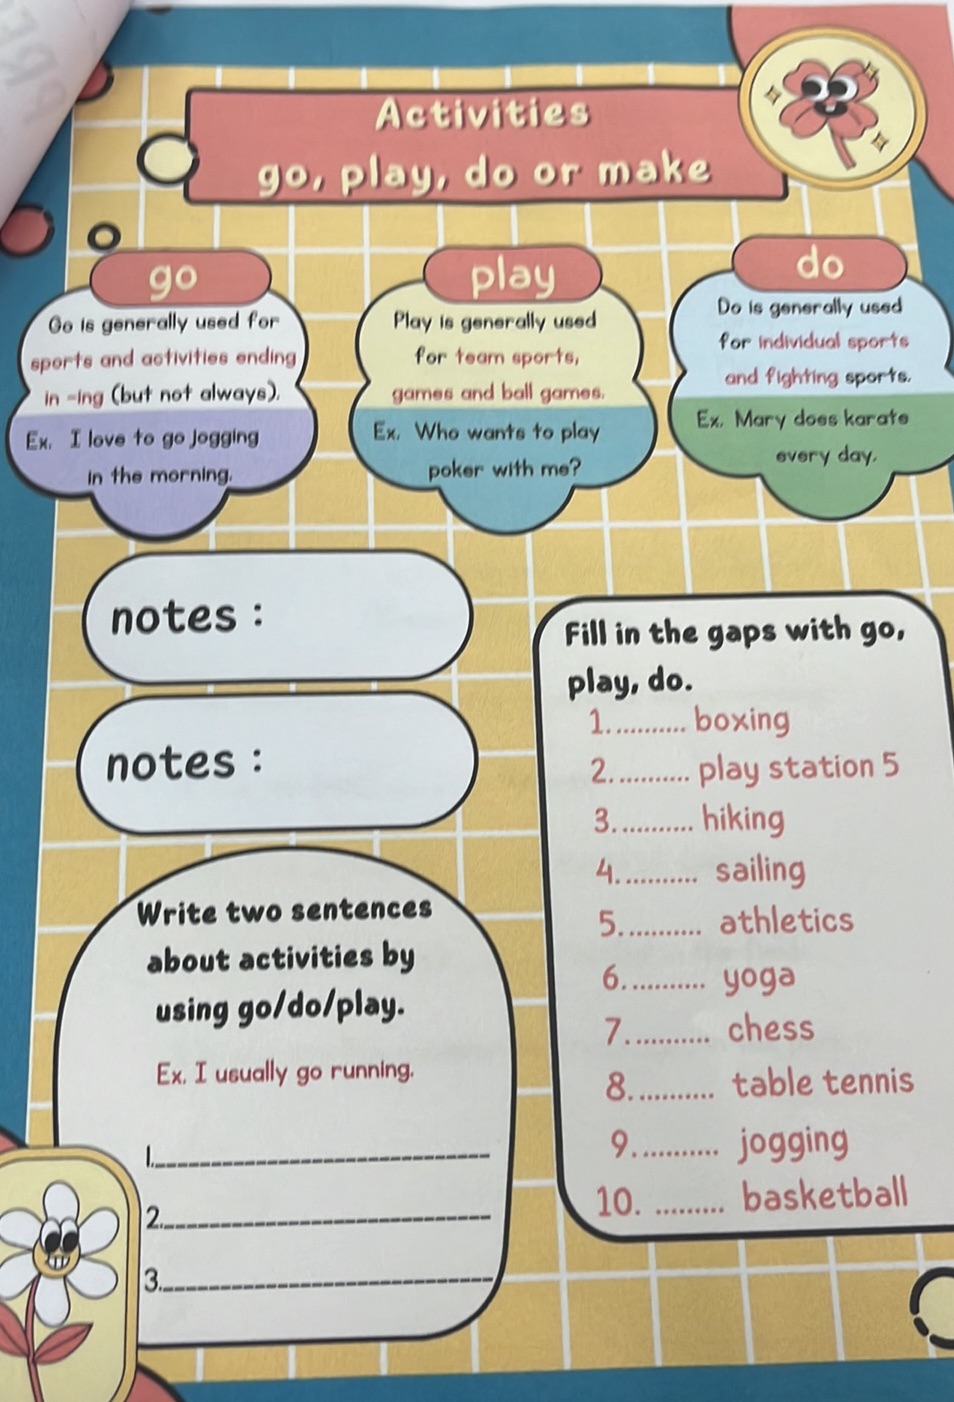 Activities
go, play, do or make
go
Go is generally used for
sports and activities ending
in -ing (but not always).
Ex. I love to go jogging
in the morning.
play
Play is generally used
for team sports,
games and ball games.
Ex. Who wants to play
poker with me?
do
Do is generally used
for individual sports
and fighting sports.
Ex. Mary does karate
every day.
notes :
notes :
Write two sentences
about activities by
using go/do/play.
Ex. I usually go running.
1.
2.
3.
Fill in the gaps with go,
play, do.
1........... boxing
2........... play station 5
3........... hiking
4........... sailing
5........... athletics
6........... yoga
7........... chess
8........... table tennis
9........... jogging
10. .......... basketball